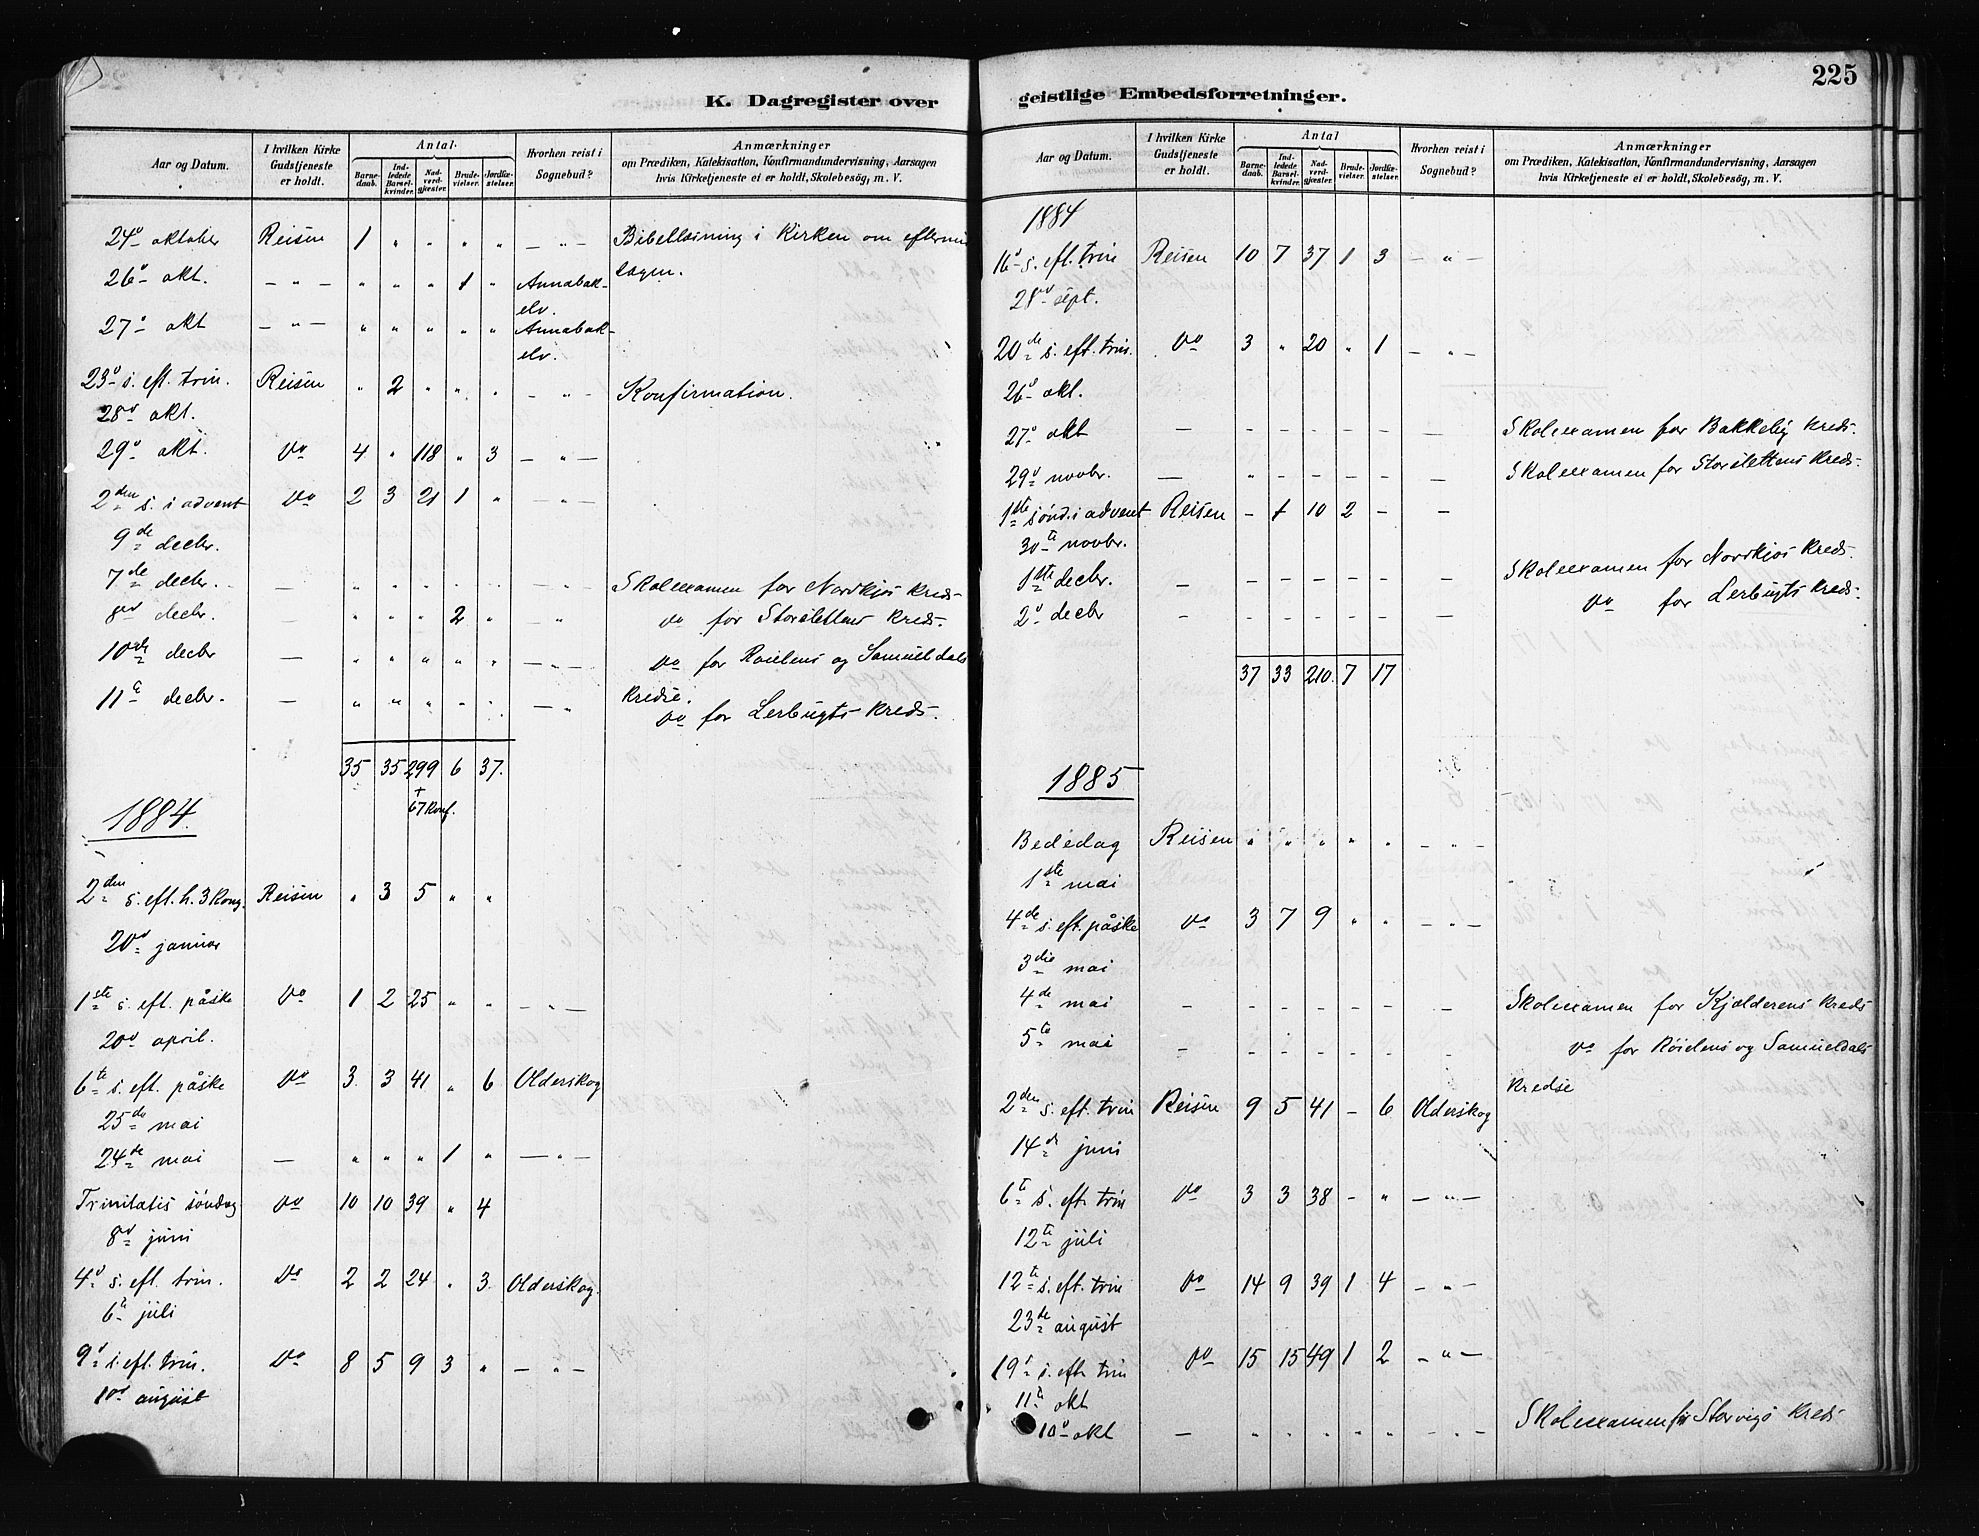 K. Dagregister over
Aar og Datum. I hvilken Kirke Gudstjeneste er holdt. Antal. Barnedaab. Indledede Barselkvinder. Nadverdgjæster. Brudevielser. Jordfæstelser. Hvorhen reist i Sognebud? Anmærkninger om Prædiken, Katekisation, Konfirmandundervisning, Aarsagen hvis Kirketjeneste ei er holdt, Skolebesøg, m. V.
24º oktober Reisen 1 " " " " – " – Bibellæsning i Kirken om eftermid
26º okt. – " – " " " 1 " Annabak- dagen.
elv.
27º okt – " – " " " " " Annabak-
elv.
23º s. eft. trin. Reisen " 2 " " " – " – Konfirmation.
28de okt.
29º okt. do 4 " 118 " 3 – " –
2den s. i advent do 2 3 21 1 " – " –
9de decbr.
7de decbr. – " " " " " – " – Skoleexamen for Nordkjos kreds.
8de decbr. – " " " 2 " – " do for Storslettens kreds.
10de decbr – " " " " " – " – do for Röielens og Samueldals
kredse.
11te decbr. – " " " " " – " do for Lerbugts kreds.
35 35 299 6 37.
+
67 konf.
1884.
2den s. eft. h. 3 kong. Reisen " 3 5 " "
20de januar
1ste s. eft. påske do 1 2 25 " " – " –
20de april.
6te s. eft. påske do 3. 3 41 " 6 Olderskog
25de mai
24de mai – " " " 1 " – " –
Trinitatis söndag do 10 10 39 " 4
8de juni
4º s. eft. trin. do 2 2 24 " 3. Olderskog.
6te juli
9º s. eft. trin. do 8 5 9 3 " – " –
10de august
geistlige Embedsforretninger.
225
Aar og Datum. I hvilken Kirke Gudstjeneste er holdt. Antal Barnedaab. Indledede Barselkvinder. Nadverdgjæster. Brudevielser. Jordfæstelser. Hvorhen reist i Sognebud? Anmærkninger om Prædiken, Katekisation, Konfirmandundervisning, Aarsagen hvis Kirketjeneste ei er holdt, Skolebesøg, m. V.
1884
16º s. eft. trin Reisen 10 7 37 1 3 – " –
28de sept.
20de s. eft. trin. do 3 " 20 " 1 – " –
26º okt.
27º okt – – – – – – – Skoleexamen for Bakkeby kreds.
29º novbr. – " – – – – – Skoleexamen for Storslettens kreds.
1ste sönd. i advent Reisen – 1 10 2 – –
30te novbr.
1ste decbr. – – – – – – – Skoleexamen for Nordkjos kreds.
2º decbr – – – – – – – do for Lerbugts kreds.
37 33 210. 7 17
1885
Bededag Reisen " " " " " – " –
1ste mai
4de s. eft. påske do 3 7 9 " " – " –
3die mai
4de mai – – – – – – – Skoleexamen for Kjelderens kreds
5te mai – – – – – – – do for Röielens og Samueldals
kredse
2den s. eft. trin Reisen 9 5 41 – 6 Olderskog
14de juni
6te s. eft. trin do 3 3 38 – " – " –
12te juli
12te s. eft. trin do 14 9 39 1 4 – " –
23de august
19º s. eft. trin do 15 15 49 1 2 – " –
11te okt
10º okt – " " " " " – " – Skoleexamen for Storvigs kreds